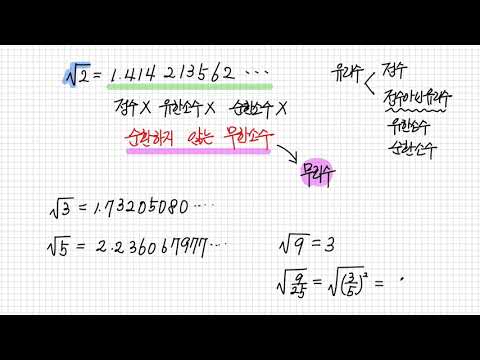 √2 = 1.414 213562 ⋯
정수 X 유한소수 X 순환소수 X
순환하지 않는 무한소수
무리수
유리수 < 정수
정수아닌유리수
유한소수
순환소수
√3 = 1.73205080⋯
√5 = 2.236067977⋯
√9 = 3
√(9/25) = √((3/5)²) =